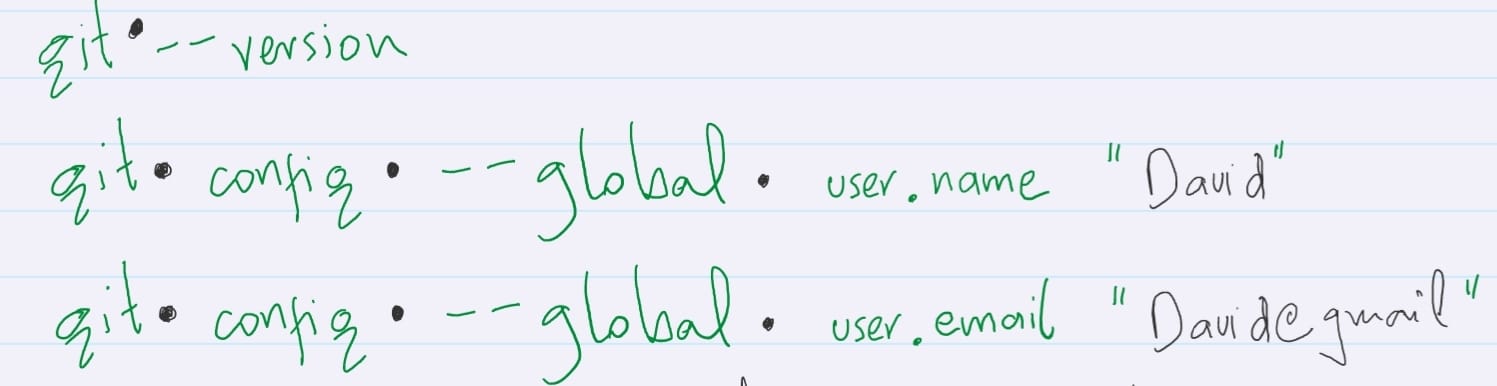 git • --version
git • config • --global • user.name "David"
git • config • --global • user.email "David@gmail"